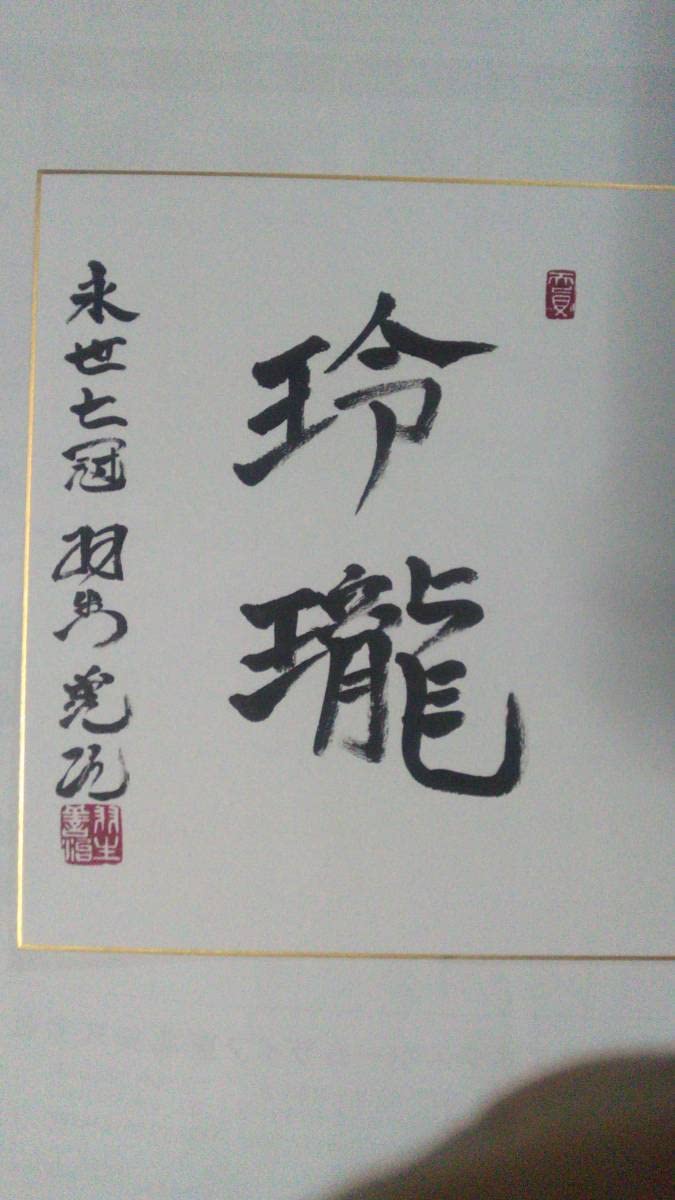 玲瓏
永世七冠 羽生善治
羽生
善治